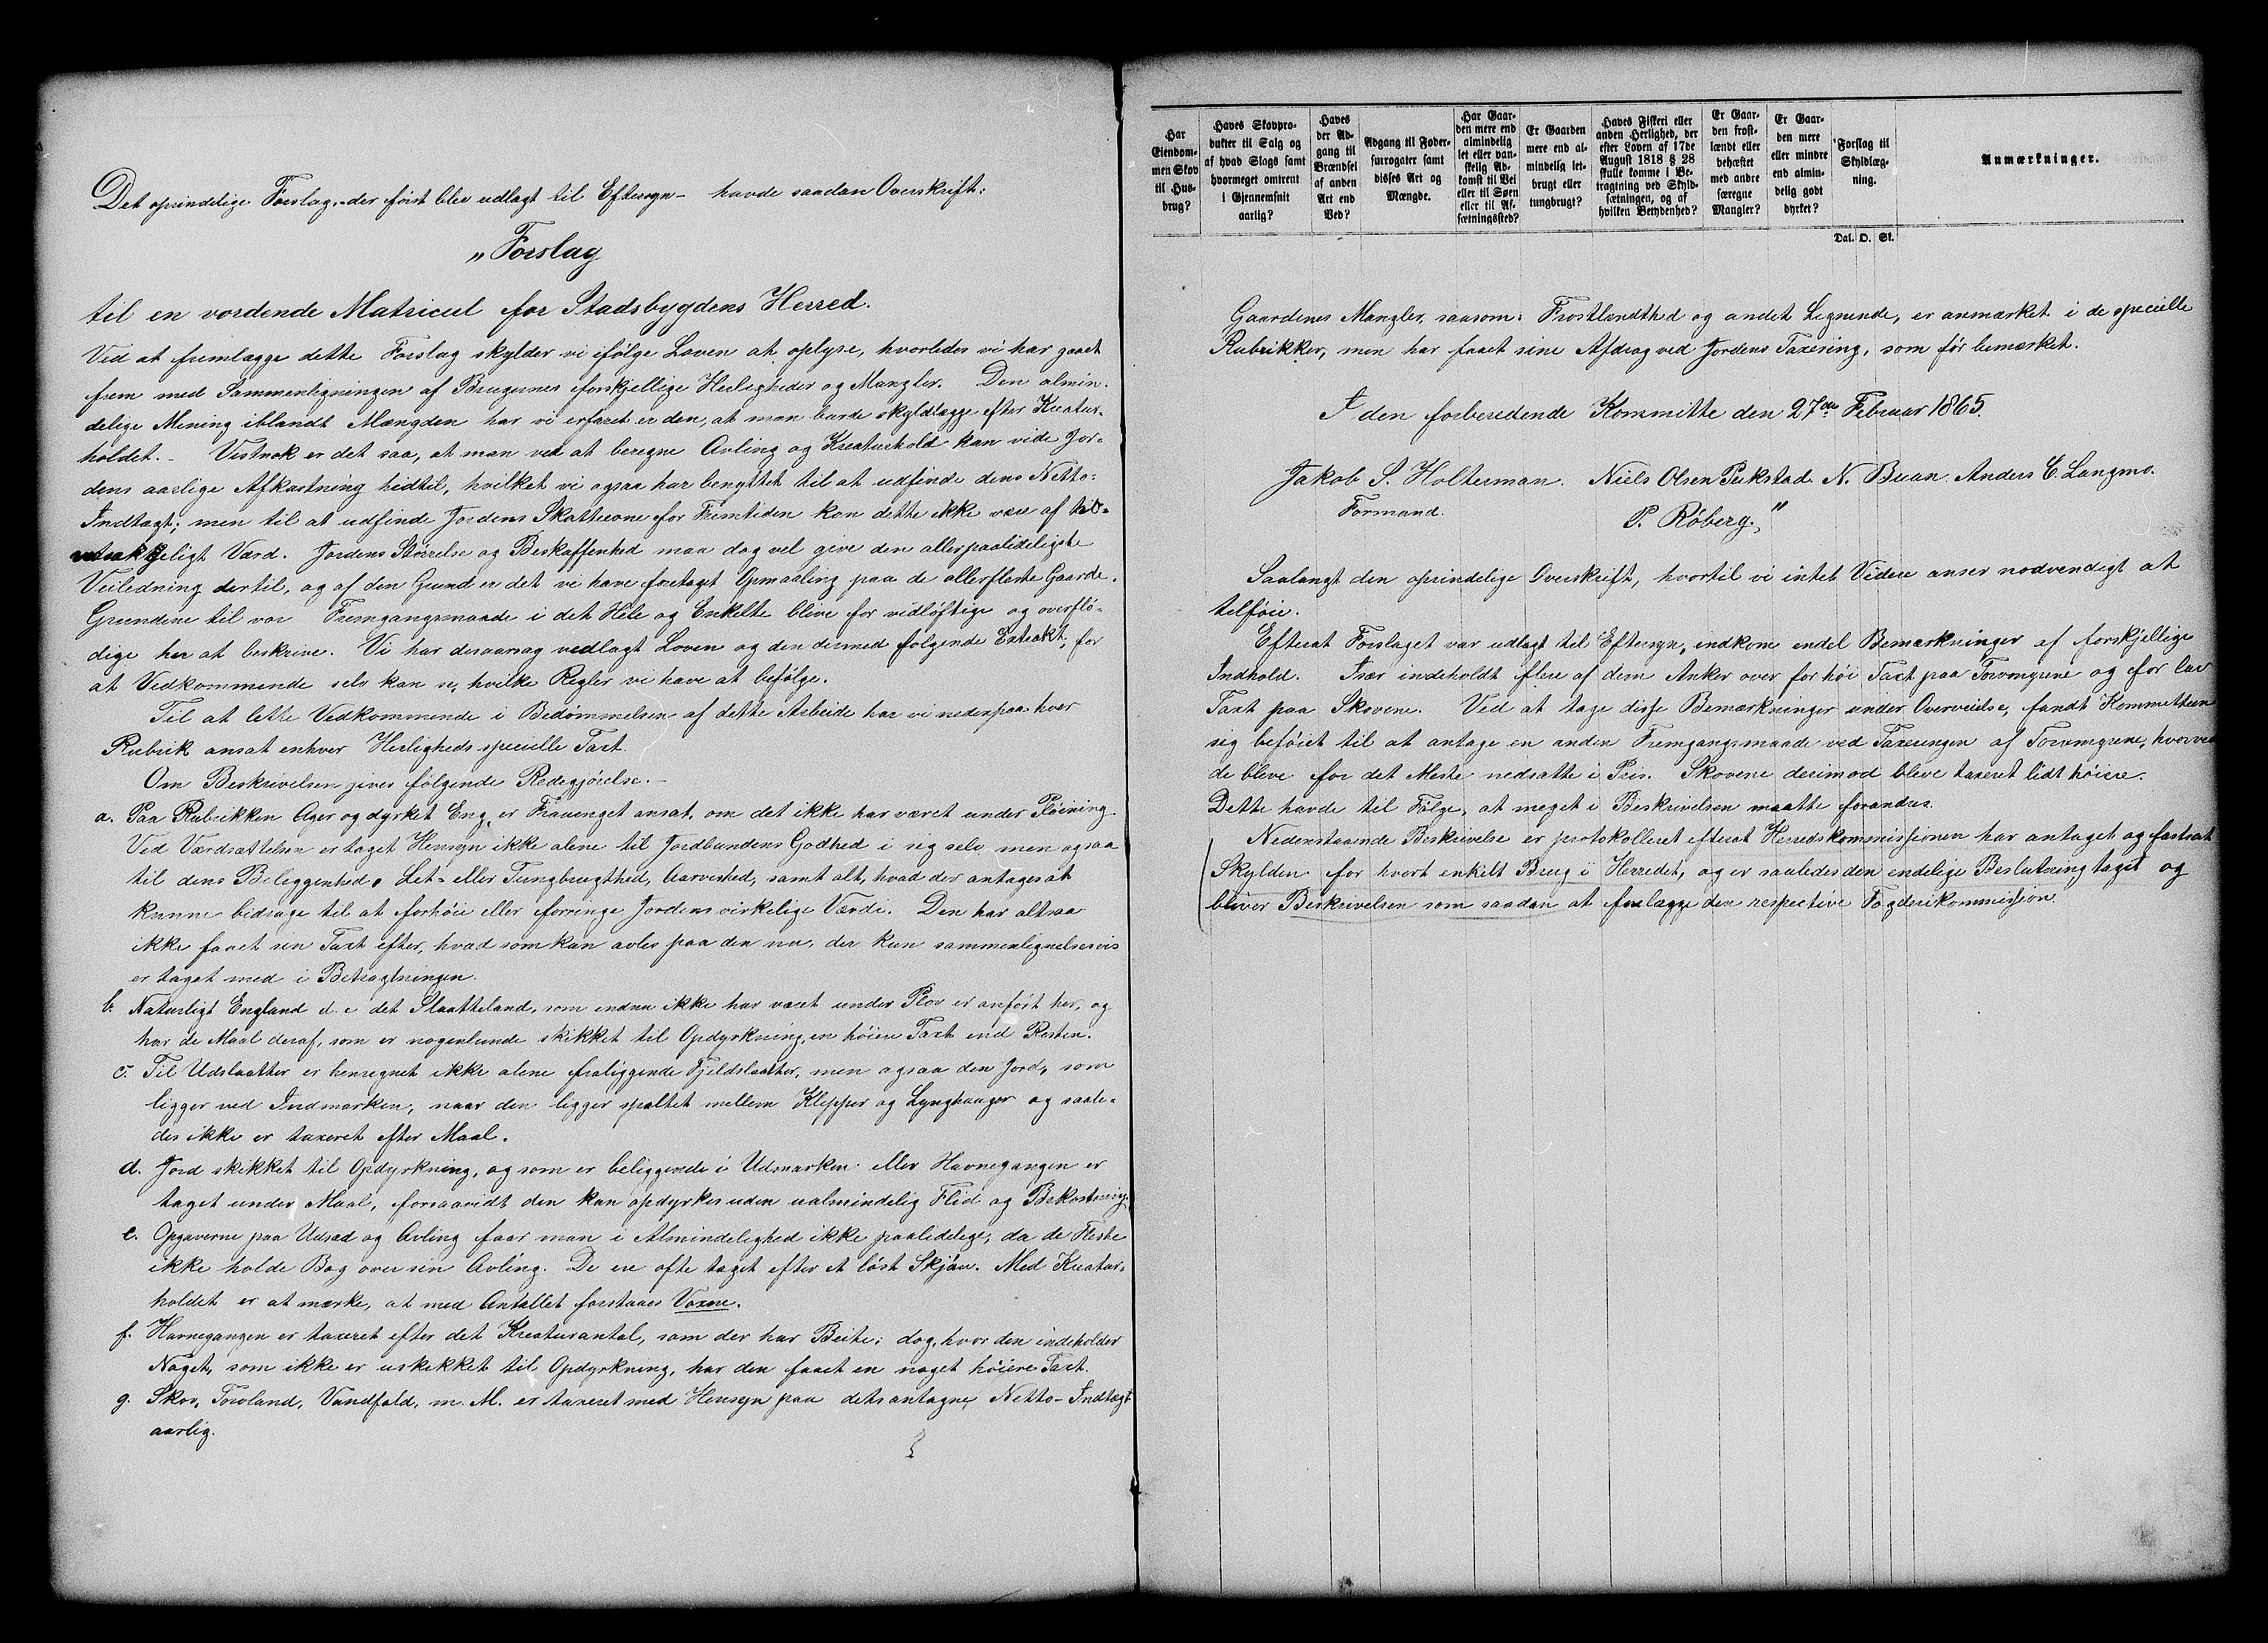 Det oprindelige Forslag, - der først blev udlagt til Eftersyn - havde saadan Overskrift:
"Forslag
til en vordende Matricul for Stadsbygdens Herred.
Ved at fremlægge dette Forslag skylder vi ifølge Loven at oplyse, hvorledes vi har gaaet
frem med Sammenligningen af Brugernes forskjellige Herligheder og Mangler. Den almin-
delige Mening iblandt Mængden har vi erfaret er den, at man burde skyldlægge efter Kreatur-
holdet. - Vistnok er det saa, at man ved at beregne Avling og Kreaturhold kan vide Jor-
dens aarlige Afkastning hidtil, hvilket vi ogsaa har benyttet til at udfinde dens Netto-
Indtægt; men til at udfinde Jordens Skatteevne for Fremtiden kan dette ikke være af til-
strækkeligt Værd. Jordens Størrelse og Beskaffenhed maa dog vel give den allerpaalideligste
Veiledning dertil, og af den Grund er det vi have foretaget Opmaaling paa de allerfleste Gaarde.
Grundene til vor Fremgangsmaade i det Hele og Enkelte blive for vidløftige og overflø-
dige her at beskrive. Vi har desaarsag vedlagt Loven og den dermed følgende Extrakt, for
at Vedkommende selv kan se, hvilke Regler vi have at befølge.
Til at lette Vedkommende i Bedømmelsen af dette Arbeide har vi nedenpaa hver
Rubrik ansat enhver Herligheds specielle Taxt.
Om Beskrivelsen gives følgende Redegjørelse. -
a. Paa Rubrikken Ager og dyrket Eng, er Frauenget ansat, om det ikke har været under Pløining.
Ved Værdsættelsen er taget Hensyn ikke alene til Jordbundens Godhed i sig selv men ogsaa
til dens Beliggenhed, Let- eller Tungbrugthed, Aarvished, samt alt, hvad der antages at
kunne bidrage til at forhøie eller forringe Jordens virkelige Værdi. Den har altsaa
ikke faaet sin Taxt efter, hvad som kan avles paa den nu, der kun sammenlignelsesvis
er taget med i Betragtningen.
b. Naturligt England d. e. det Slaatteland, som endnu ikke har været under Plov er anført her, og
har de Maal deraf, som er nogenlunde skikket til Opdyrkning, en høiere Taxt end Resten.
c. Til Udslaatter er henregnet ikke alene fraliggende Fjeldslaatter, men ogsaa den Jord, som
ligger ved Indmarken, naar den ligger spaltet mellem Klipper og Lynghauger og saale-
des ikke er taxeret efter Maal.
d. Jord skikket til Opdyrkning, og som er beliggende i Udmarken eller Havnegangen er
taget under Maal, forsaavidt den kan opdyrkes uden ualmindelig Flid og Bekostning.
e. Opgaverne paa Udsæd og Avling faar man i Almindelighed ikke paalidelige, da de Fleste
ikke holde Bog over sin Avling. De ere ofte taget efter et løst Skjøn. Med Kreatur-
holdet er at mærke, at med Antallet forstaaes Voxne.
f. Havnegangen er taxeret efter det Kreaturantal, som der har Beite; dog, hvor den indeholder
Noget, som ikke er uskikket til Opdyrkning, har den faaet en noget høiere Taxt.
g. Skov, Torvland, Vandfald, m. M. er taxeret med Hensyn paa dets antagne Netto-Indtægt
aarlig.
Har Eiendommen Skov til Husbrug?
Haves Skovprodukter til Salg og af hvad Slags samt hvormeget omtrent i Gjennemsnit aarlig?
Haves der Adgang til Brændsel af anden Art end Ved?
Adgang til Fodersurrogater samt disses Art og Mængde.
Har Gaarden mere end almindelig let eller vanskelig Adkomst til Vei eller til Søen eller til Afsætningssted?
Er Gaarden mere end almindelig letbrugt eller tungbrugt?
Haves Fiskeri eller anden Herlighed, der efter Loven af 17de August 1818 § 28 skulle komme i Betragtning ved Skyldsætningen, og af hvilken Betydenhed?
Er Gaarden frostlændt eller behæftet med andre særegne Mangler?
Er Gaarden mere eller mindre end almindelig godt dyrket?
Forslag til Skyldlægning.
Anmærkninger.
Dal. O. Sk.
Gaardenes Mangler, saasom: Frostlændthed og andet Lignende, er anmærket i de specielle
Rubrikker, men har faaet sine Afdrag ved Jordens Taxering, som før bemærket.
I den forberedende Kommitte den 27de Februar 1865.
Jakob S. Holterman. Niels Olsen Pukstad. N. Buan. Anders E. Langmo.
Formand. P. Røberg."
Saalangt den oprindelige Overskrift, hvortil vi intet Videre anser nødvendigt at
tilføie.
Efterat Forslaget var udlagt til Eftersyn, indkom endel Bemærkninger af forskjellige
Indhold. Især indeholdt flere af dem Anker over for høi Taxt paa Torvmyrene og for lav
Taxt paa Skovene. Ved at tage disse Bemærkninger under Overveielse, fandt Kommitteen
sig beføiet til at antage en anden Fremgangsmaade ved Taxeringen af Torvmyrene, hvorved
de bleve for det Meste nedsatte i Pris. Skovene derimod bleve taxeret lidt høiere.
Dette havde til Følge, at meget i Beskrivelsen maatte forandres.
Nedenstaaende Beskrivelse er protokolleret efterat Herredskommissionen har antaget og fastsat
Skylden for hvert enkelt Brug i Herredet, og er saaledes den endelige Beslutning taget og
bliver Beskrivelsen som saadan at forelægge den respective Fogderikommission.